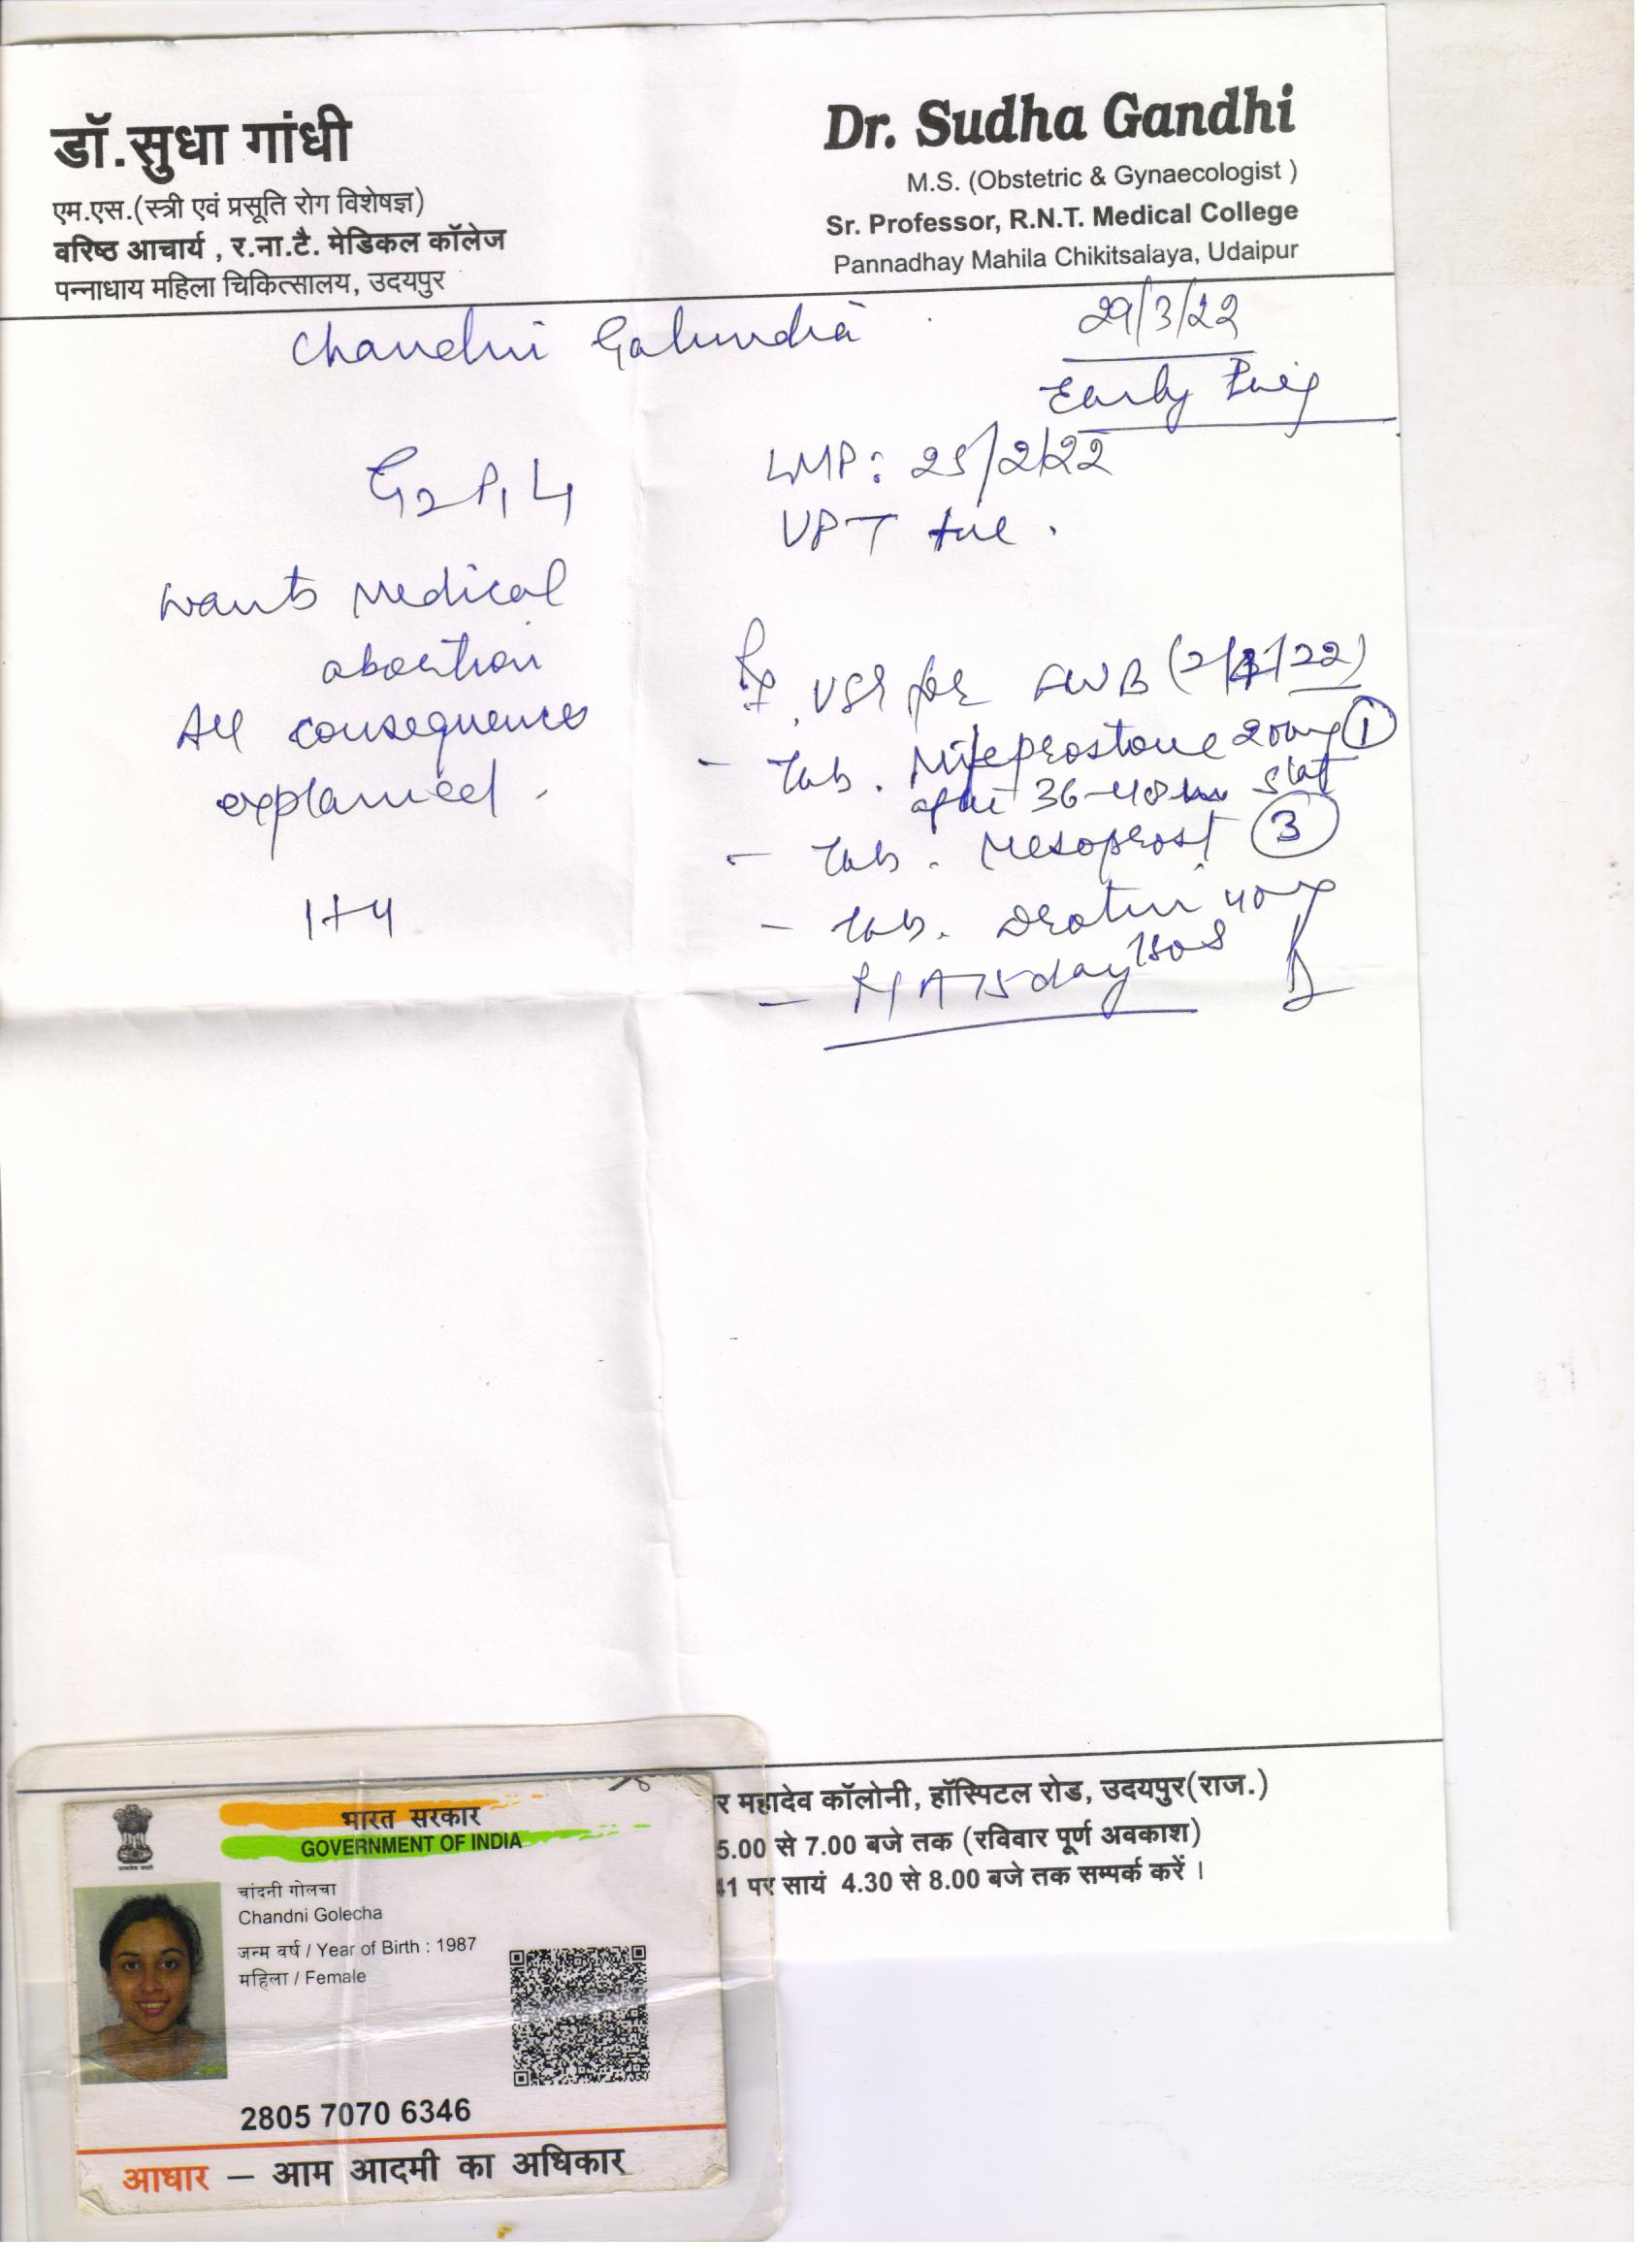 डॉ.सुधा गांधी
एम.एस.(स्त्री एवं प्रसूति रोग विशेषज्ञ)
वरिष्ठ आचार्य , र.ना.टै. मेडिकल कॉलेज
पन्नाधाय महिला चिकित्सालय, उदयपुर
Dr. Sudha Gandhi
M.S. (Obstetric & Gynaecologist )
Sr. Professor, R.N.T. Medical College
Pannadhay Mahila Chikitsalaya, Udaipur
Chandni
29/3/22
Early Preg
LMP: 25/2/22
UPT +ve .
G2P1L1
wants Medical
abortion
All consequences
explained .
1+4
Rx . USG for FWB (2/4/22)
- Tab. Mifeprostone 200mg 1
after 36-48 hr stat
- Tab. Mesoprost 3
- Tab. Drotin 40mg
15 day
र महादेव कॉलोनी, हॉस्पिटल रोड, उदयपुर(राज.)
5.00 से 7.00 बजे तक (रविवार पूर्ण अवकाश)
41 पर सायं 4.30 से 8.00 बजे तक सम्पर्क करें ।
भारत सरकार
GOVERNMENT OF INDIA
चांदनी गोलचा
Chandni Golecha
जन्म वर्ष / Year of Birth : 1987
महिला / Female
2805 7070 6346
आधार – आम आदमी का अधिकार